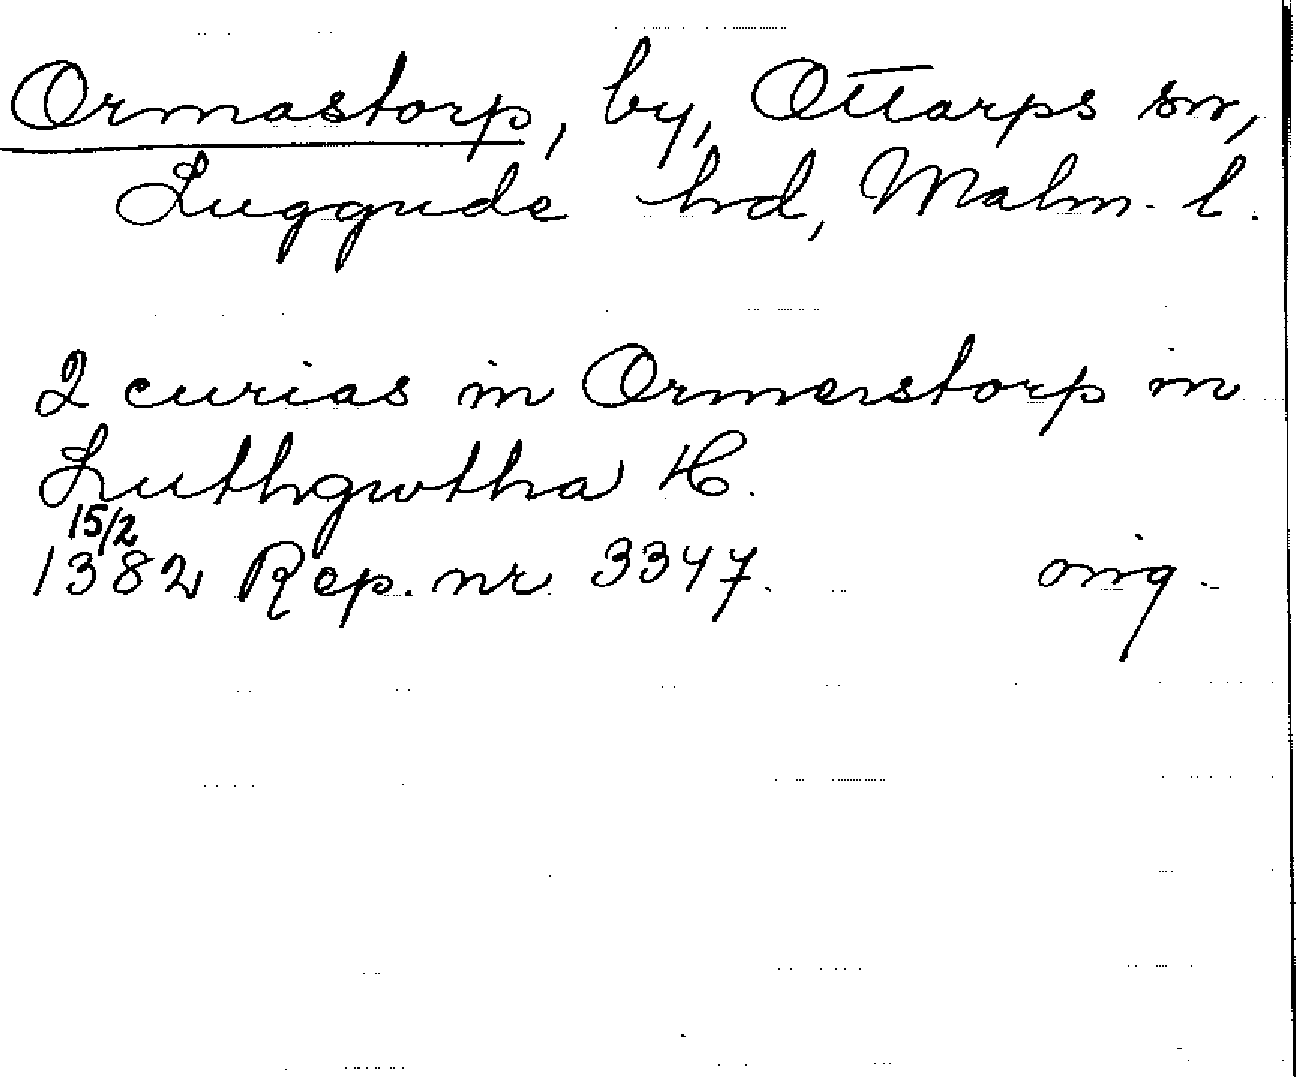 Ormastorp, by, Ottarps sn,
Luggude hd, Malm. l.
2 curias in Ormerstorp in
Luthgwtha H.
15/2
1382 Rep. nr 3347. orig.